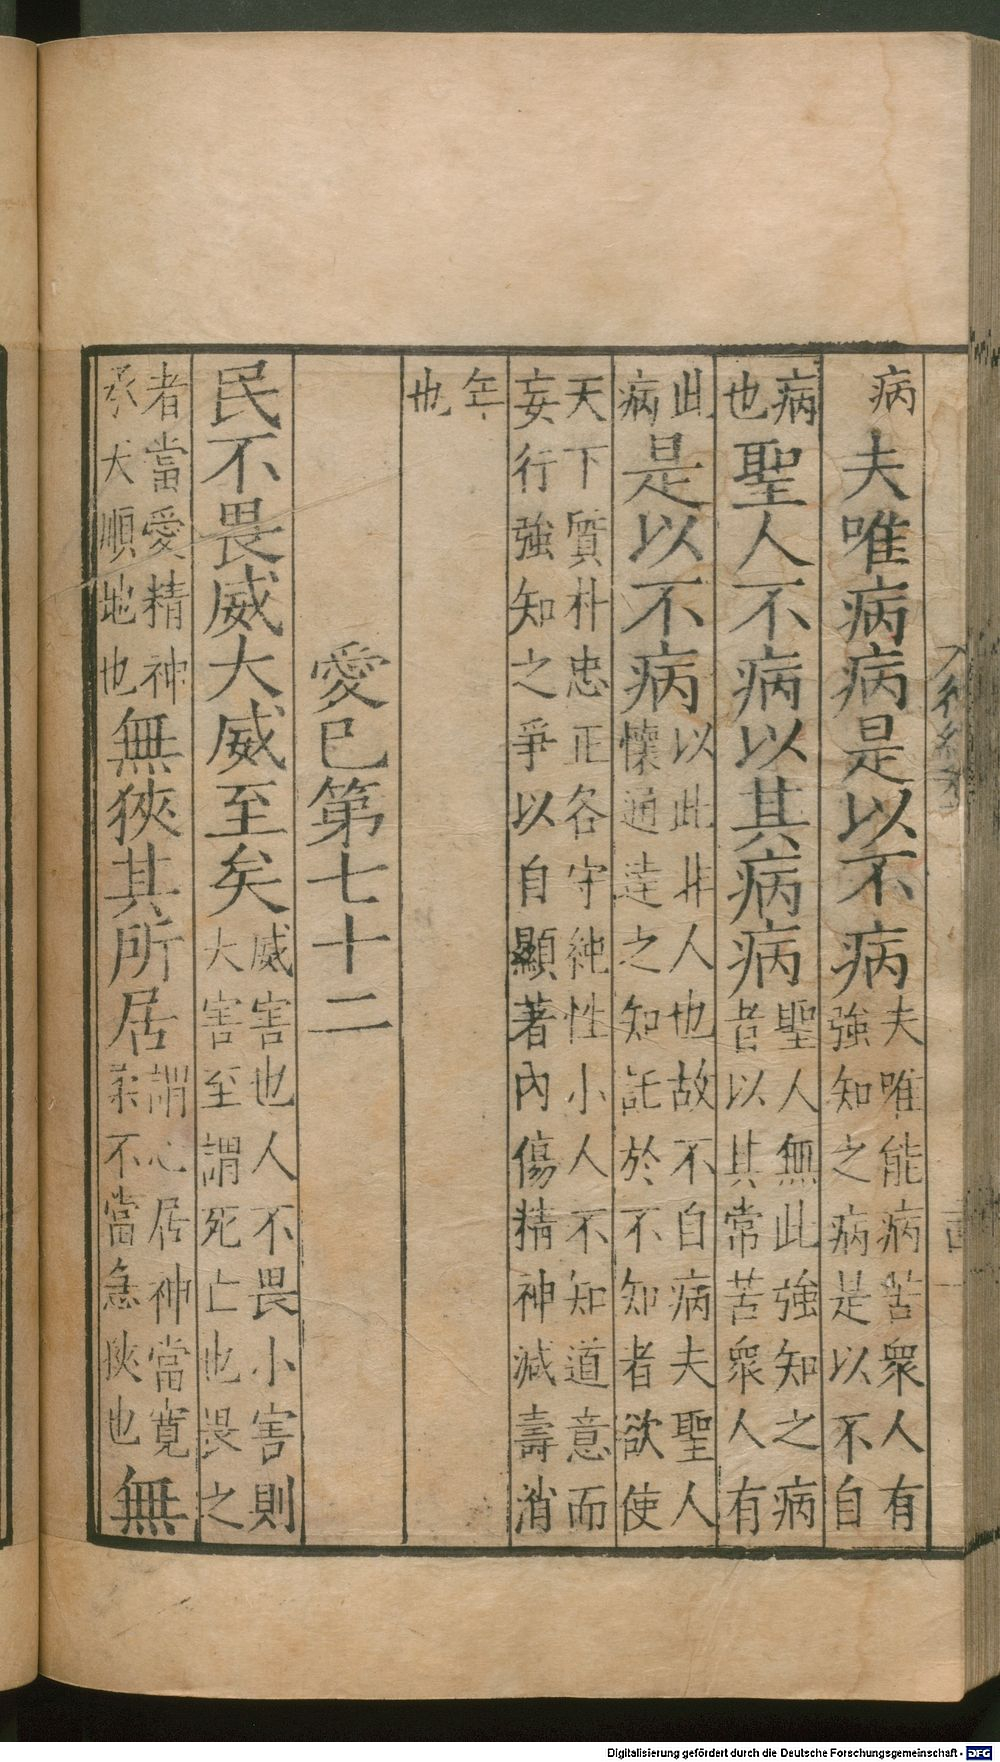 病夫唯病病是以不病夫唯能病苦衆人有強知之病是以不自
病也聖人不病以其病病聖人無此強知之病者以其常苦衆人有
此病是以不病以此非人也故不自病夫聖人懷通達之知託於不知者欲使
天下質朴忠正各守純性小人不知道意而妄行強知之爭以自顯著內傷精神減壽消
年也
愛己第七十二
民不畏威大威至矣威害也人不畏小害則大害至謂死亡也畏之
者當愛精神承犬順地也無狹其所居謂心居神當寬柔不當急狹也無
Digitalisierung gefördert durch die Deutsche Forschungsgemeinschaft - DFG